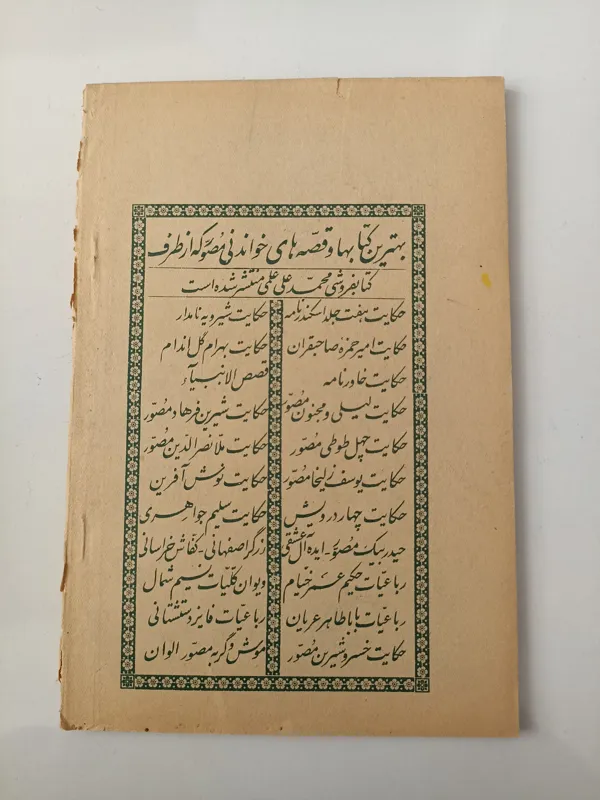 بهترین کتابها و قصّه های خواندنی مصوّر که از طرف
کتابفروشی محمّد علی علمی منتشر شده است
حکایت هفت جلد اسکندرنامه
حکایت امیر حمزه صاحبقران
حکایت خاورنامه
حکایت لیلی و مجنون مصوّر
حکایت چهل طوطی مصور
حکایت یوسف زلیخا مصوّر
حکایت چهار درویش
حیدر بیک مصوّر - ایده آل عشقی
رباعیّات حکیم عمر خیّام
رباعیّات بابا طاهر عریان
حکایت خسرو شیرین مصوّر
حکایت شیرویه نامدار
حکایت بهرام گل اندام
قصص الانبیآء
حکایت شیرین فرهاد مصوّر
حکایت ملّا نصرالدّین مصوّر
حکایت نوش آفرین
حکایت سلیم جواهری
زرگر اصفهانی - کفّاش خراسانی
دیوان کلّیات نسیم شمال
رباعیّات فایز دشتستانی
موش و گربه مصوّر الوان